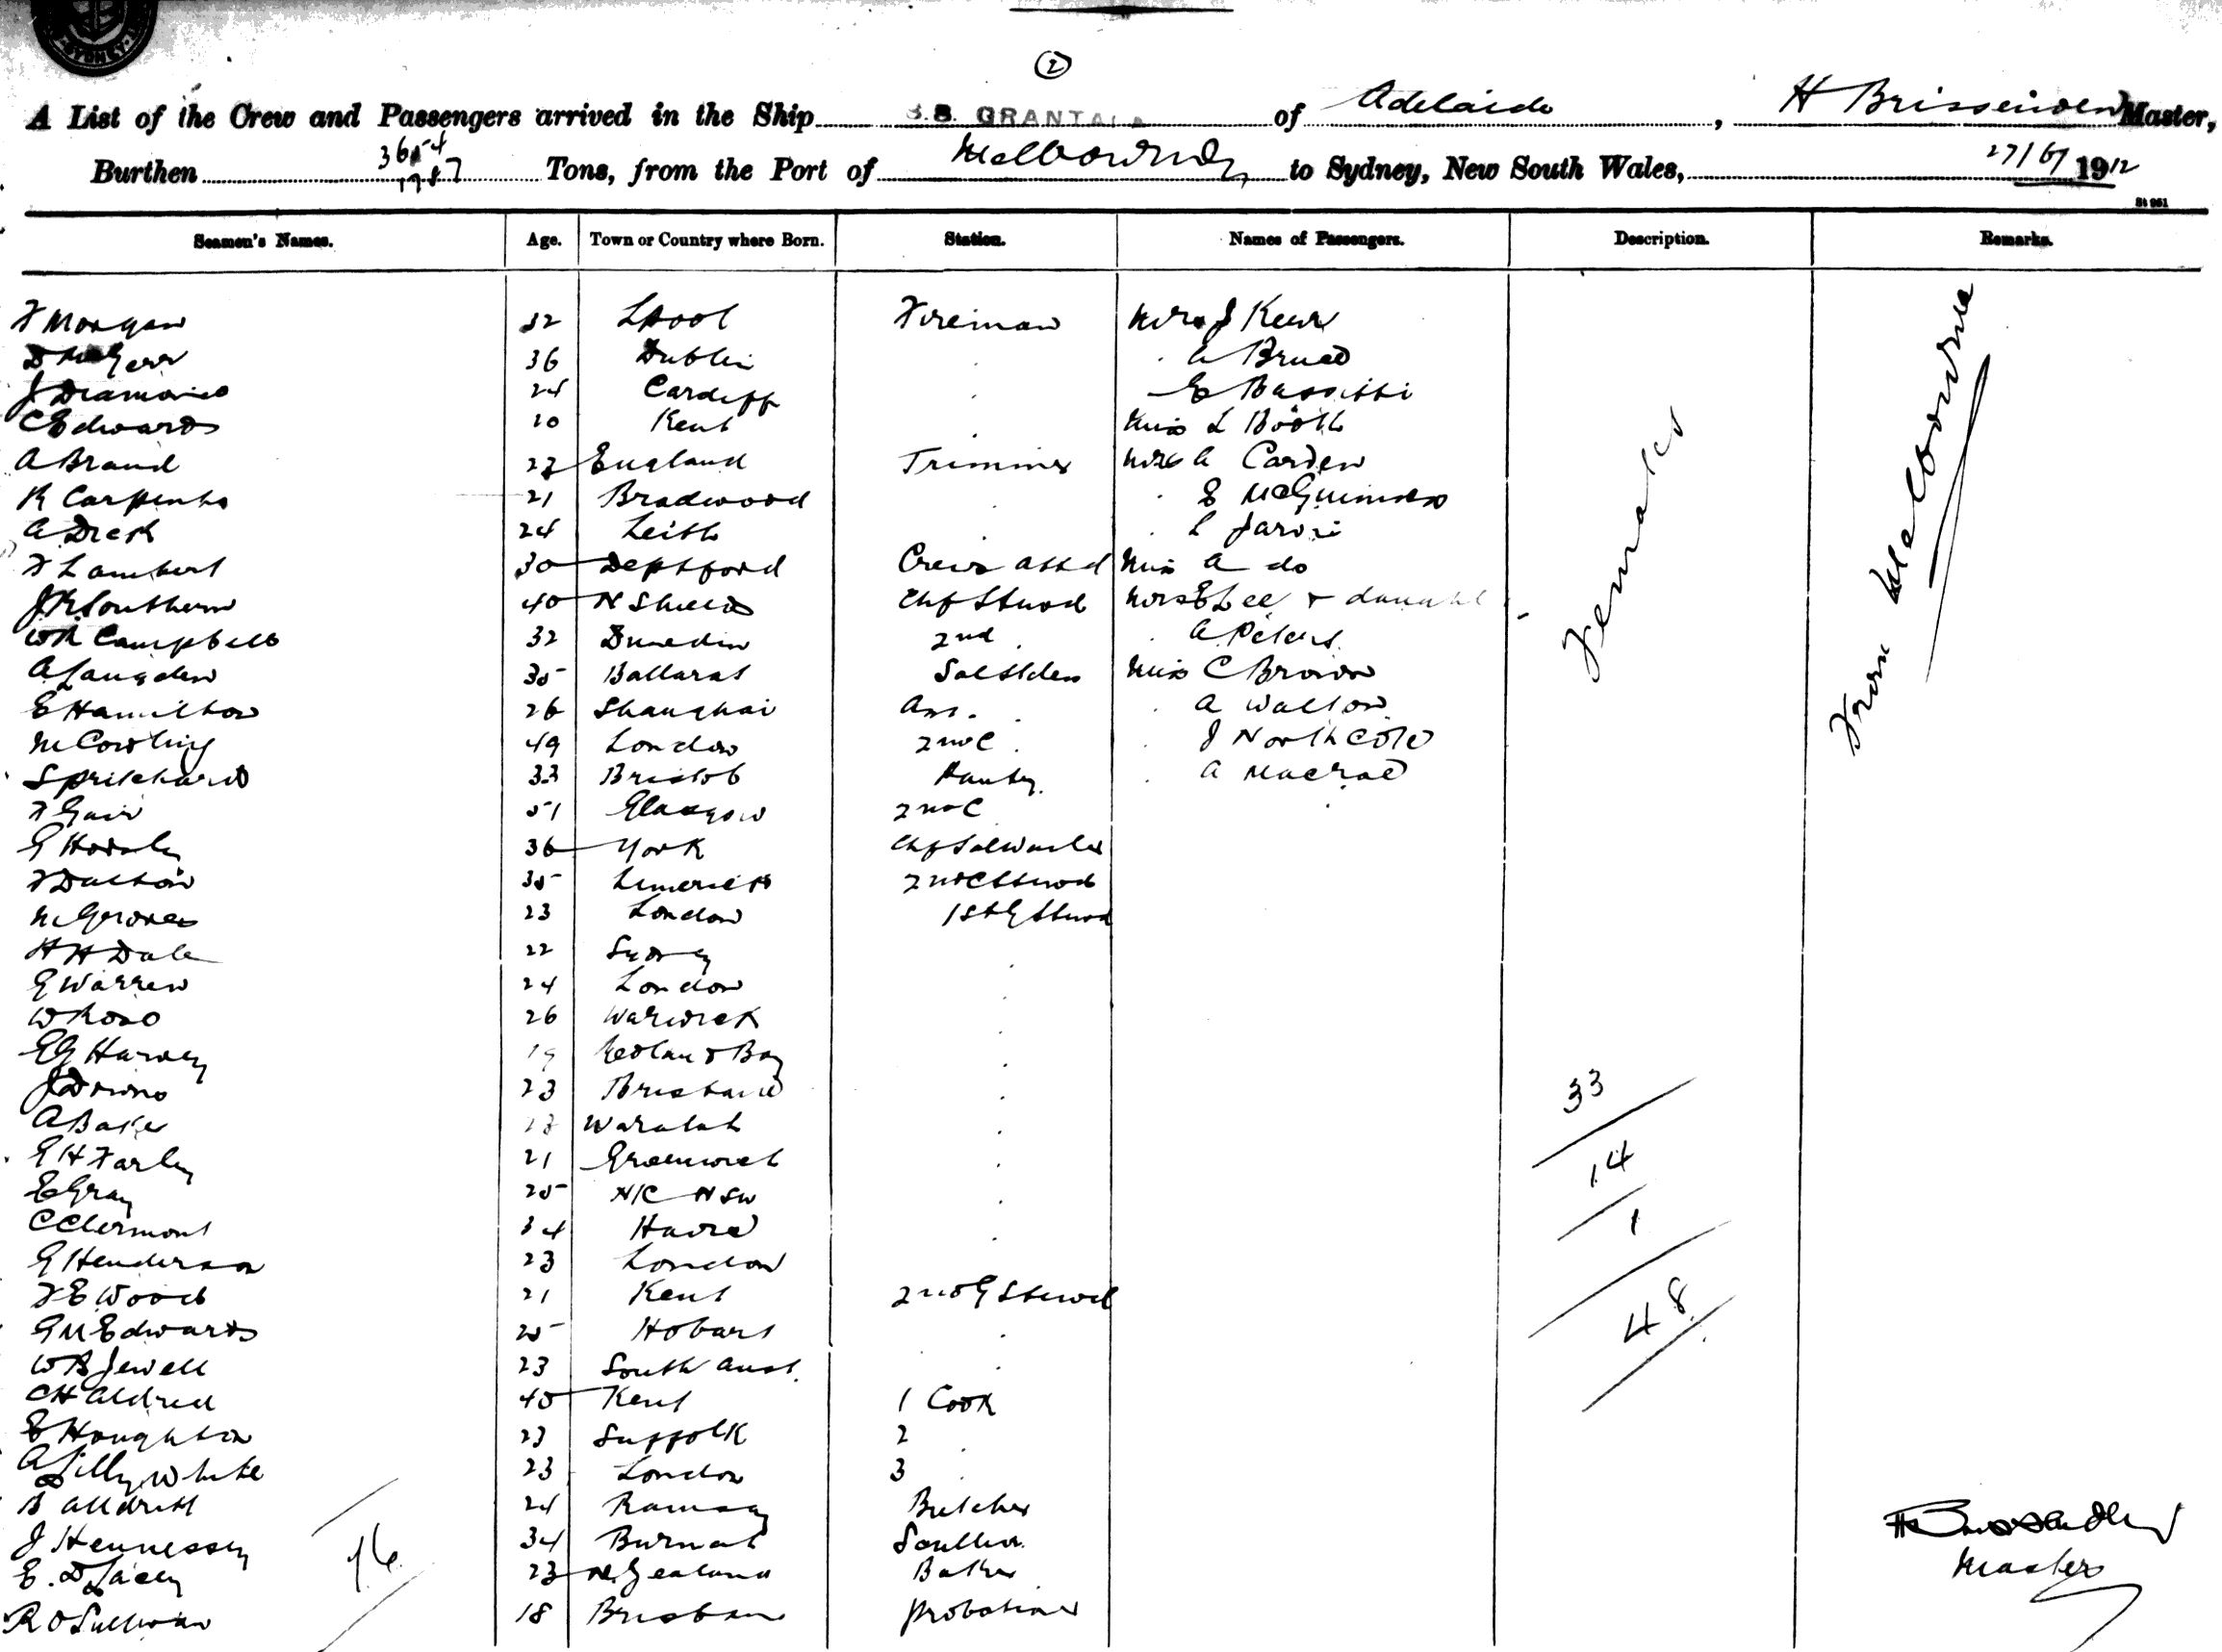 SYDNEY
2
A List of the Crew and Passengers arrived in the Ship S.S. GRANTALA of Adelaide, H Brissenden Master,
Burthen 3654 1787 Tons, from the Port of Melbourne to Sydney, New South Wales, 27/6/1912
St 961
Seamen's Names. Age. Town or Country where Born. Station. Names of Passengers. Description. Remarks.
Females
From Melbourne
F Morgan 32 Lpool Fireman Mrs J Kerr
D McGerr 36 Dublin . . A Bruce
J Diamond 24 Cardiff . E Bassitti
C Edwards 20 Kent . Miss L Booth
A Brand 27 England Trimmer Mrs A Carden
R Carpenter 21 Bradwood . . E McGuinness
A Dick 24 Leith . . L Jarvie
F Lambert 30 Deptford Crews attd Miss A do
J R Southern 40 N Shields Chf Stwd Mrs E Lee & daught
W R Campbell 32 Dunedin 2nd . . A Peters
A Langdon 35 Ballarat Miss C Brown
E Hamilton 26 Shanghai Ass. . . A Walton
M Cowling 49 London 2nd C . . J Northcote
S Prichard 33 Bristol Pantry . A Macrae
F Gair 51 Glasgow 2nd C
G Horsley 36 York Chf Sal Waiter
F Dalton 35 Limerick 2nd C Stwd
M Groves 23 London 1st G Stwd
H H Dale 22 Sydney .
G Warren 24 London .
W Rose 26 Warwick .
E G Harvey 19 Redland Bay .
J Downs 23 Brisbane .
A Baker Waratah .
G H Farley 21 Greenwich .
E Gray 25 N/C NSW .
C Clermont 34 Havre .
G Henderson 23 London
F E Wood 21 Kent 2nd G Stewd
G M Edwards 25 Hobart .
W B Jewell 23 South Aust. .
C H Aldred 40 Kent 1 Cook
E Houghton 23 Suffolk 2 .
A Lillywhite 23 London 3 .
B Alldritt 24 Ramsay Butcher
J Hennessy 34 Burmah Scullion
E. D Lacey 23 N. Zealand Baker
R O Sullivan 18 Brisbane Probationer
33
14
1
48
76
H Brissenden
Master